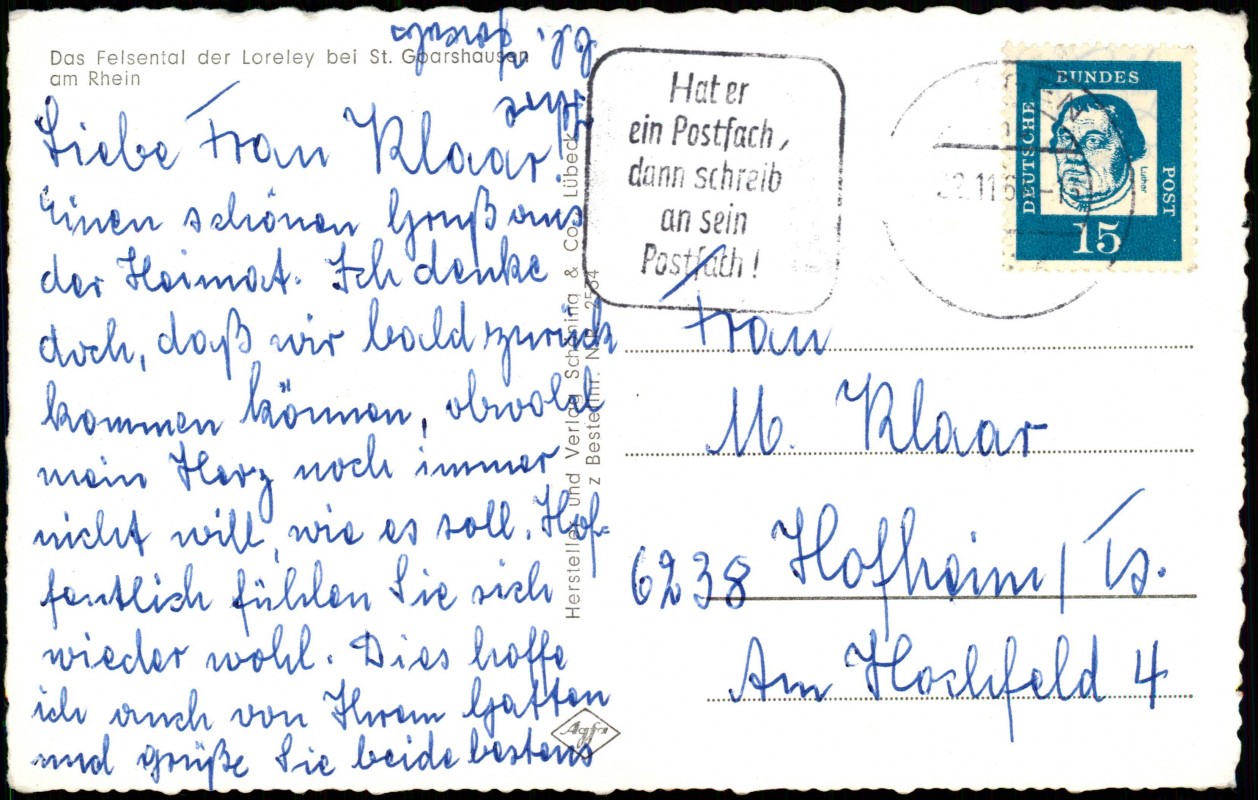 Das Felsental der Loreley bei St. Goarshausen
am Rhein
Liebe Frau Klaar!
Einen schönen Gruß aus
der Heimat. Ich denke
doch, daß wir bald zurück
kommen können, obwohl
mein Herz noch immer
nicht will, wie es soll. Hof-
fentlich fühlen Sie sich
wieder wohl. Dies hoffe
ich auch von Ihrem Gatten
und grüße Sie beide bestens
Ihre
Hersteller und Verlag Schöning & Co., Lübeck
Agfa
Hat er
ein Postfach,
dann schreib
an sein
Postfach!
DEUTSCHE
BUNDES
POST
Luther
15
Frau
M. Klaar
6238 Hofheim/Ts.
Am Hochfeld 4